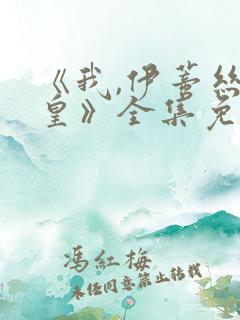 《我,伊蒂丝
皇》全集免
冯红梅
未经同意禁止转载